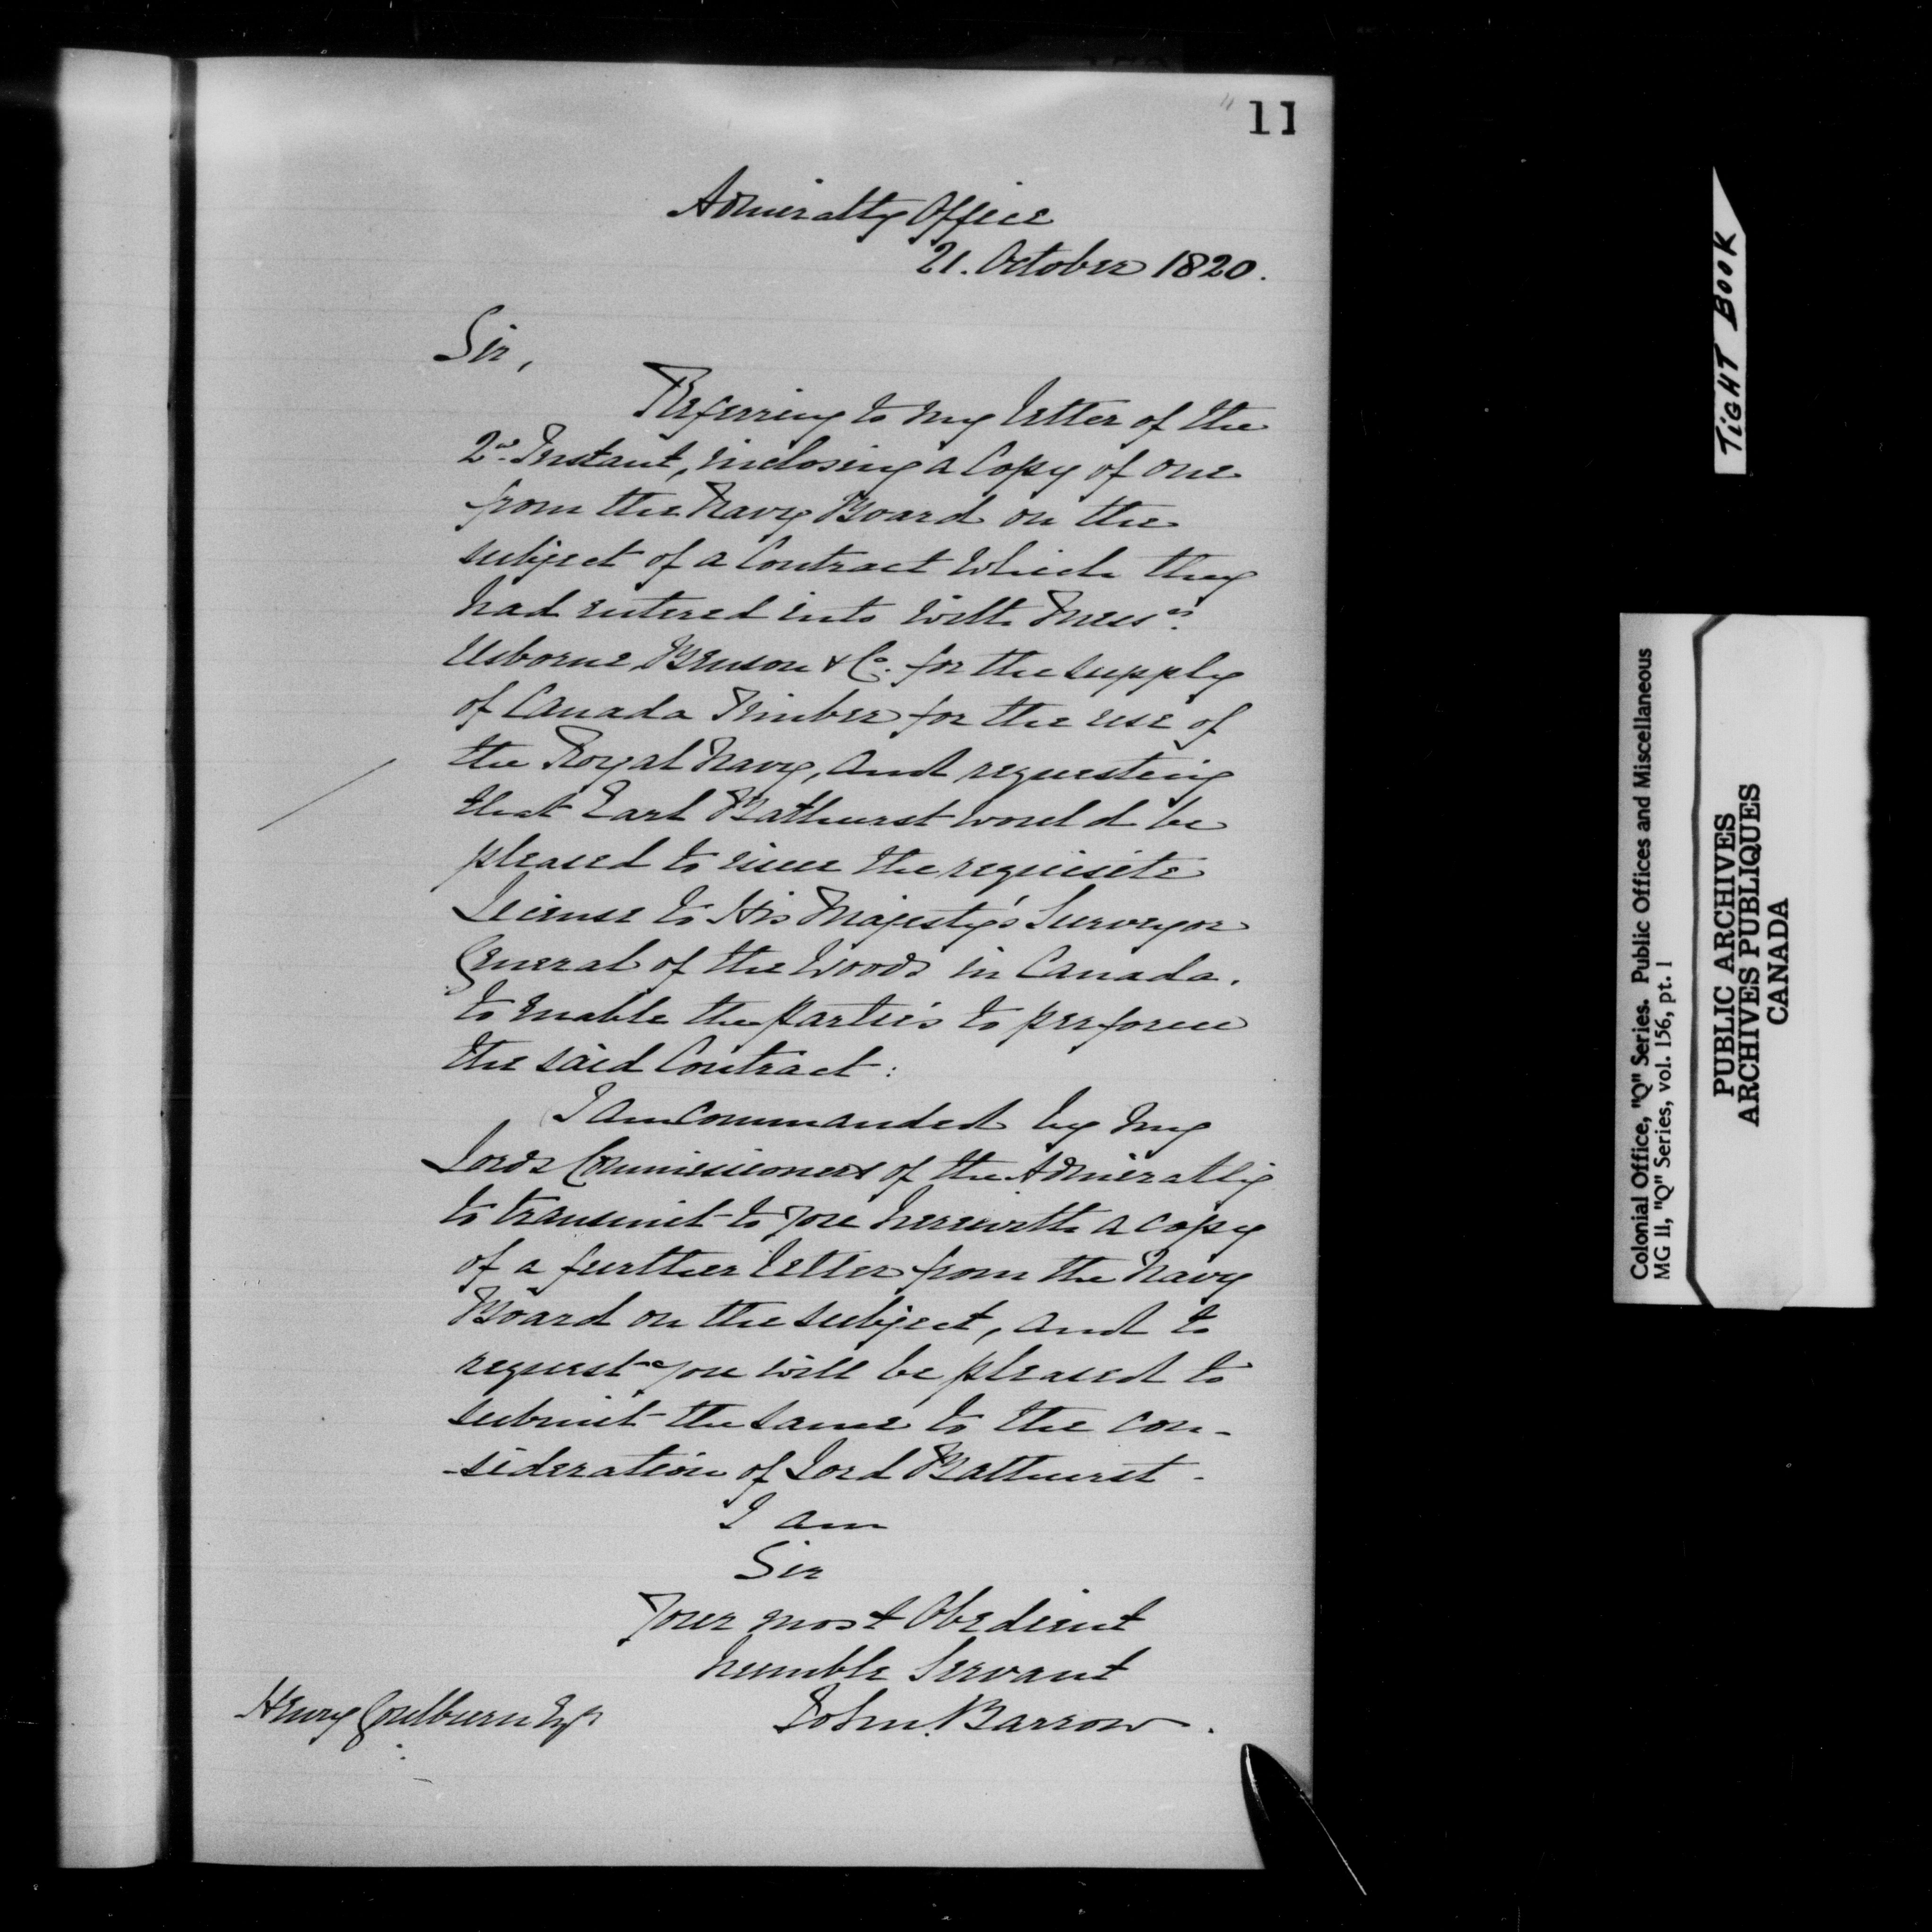 11
Admiralty Office
21. October 1820.
Sir,
Referring to my letter of the
2d. Instant, inclosing a Copy of one
from the Navy Board on the
subject of a Contract which they
had entered into with Messrs.
Usborne Benson & Co. for the supply
of Canada Timber for the use of
the Royal Navy, and requesting
that Earl Bathurst would be
pleased to issue the requisite
License to His Majesty's Surveyor
General of the Woods in Canada.
to enable the parties to perform
the said Contract:
I am commanded by my
Lords Commissioners of the Admiralty
to transmit to you herewith a copy
of a further letter from the Navy
Board on the subject, and to
request you will be pleased to
submit the same to the con-
-sideration of Lord Bathurst-
I am
Sir
Your most Obedient
humble Servant
John Barrow.
Henry Goulburn Esqr
TIGHT BOOK
Colonial Office, "Q" Series. Public Offices and Miscellaneous
MG 11, "Q" Series, vol. 156, pt. 1
PUBLIC ARCHIVES
ARCHIVES PUBLIQUES
CANADA